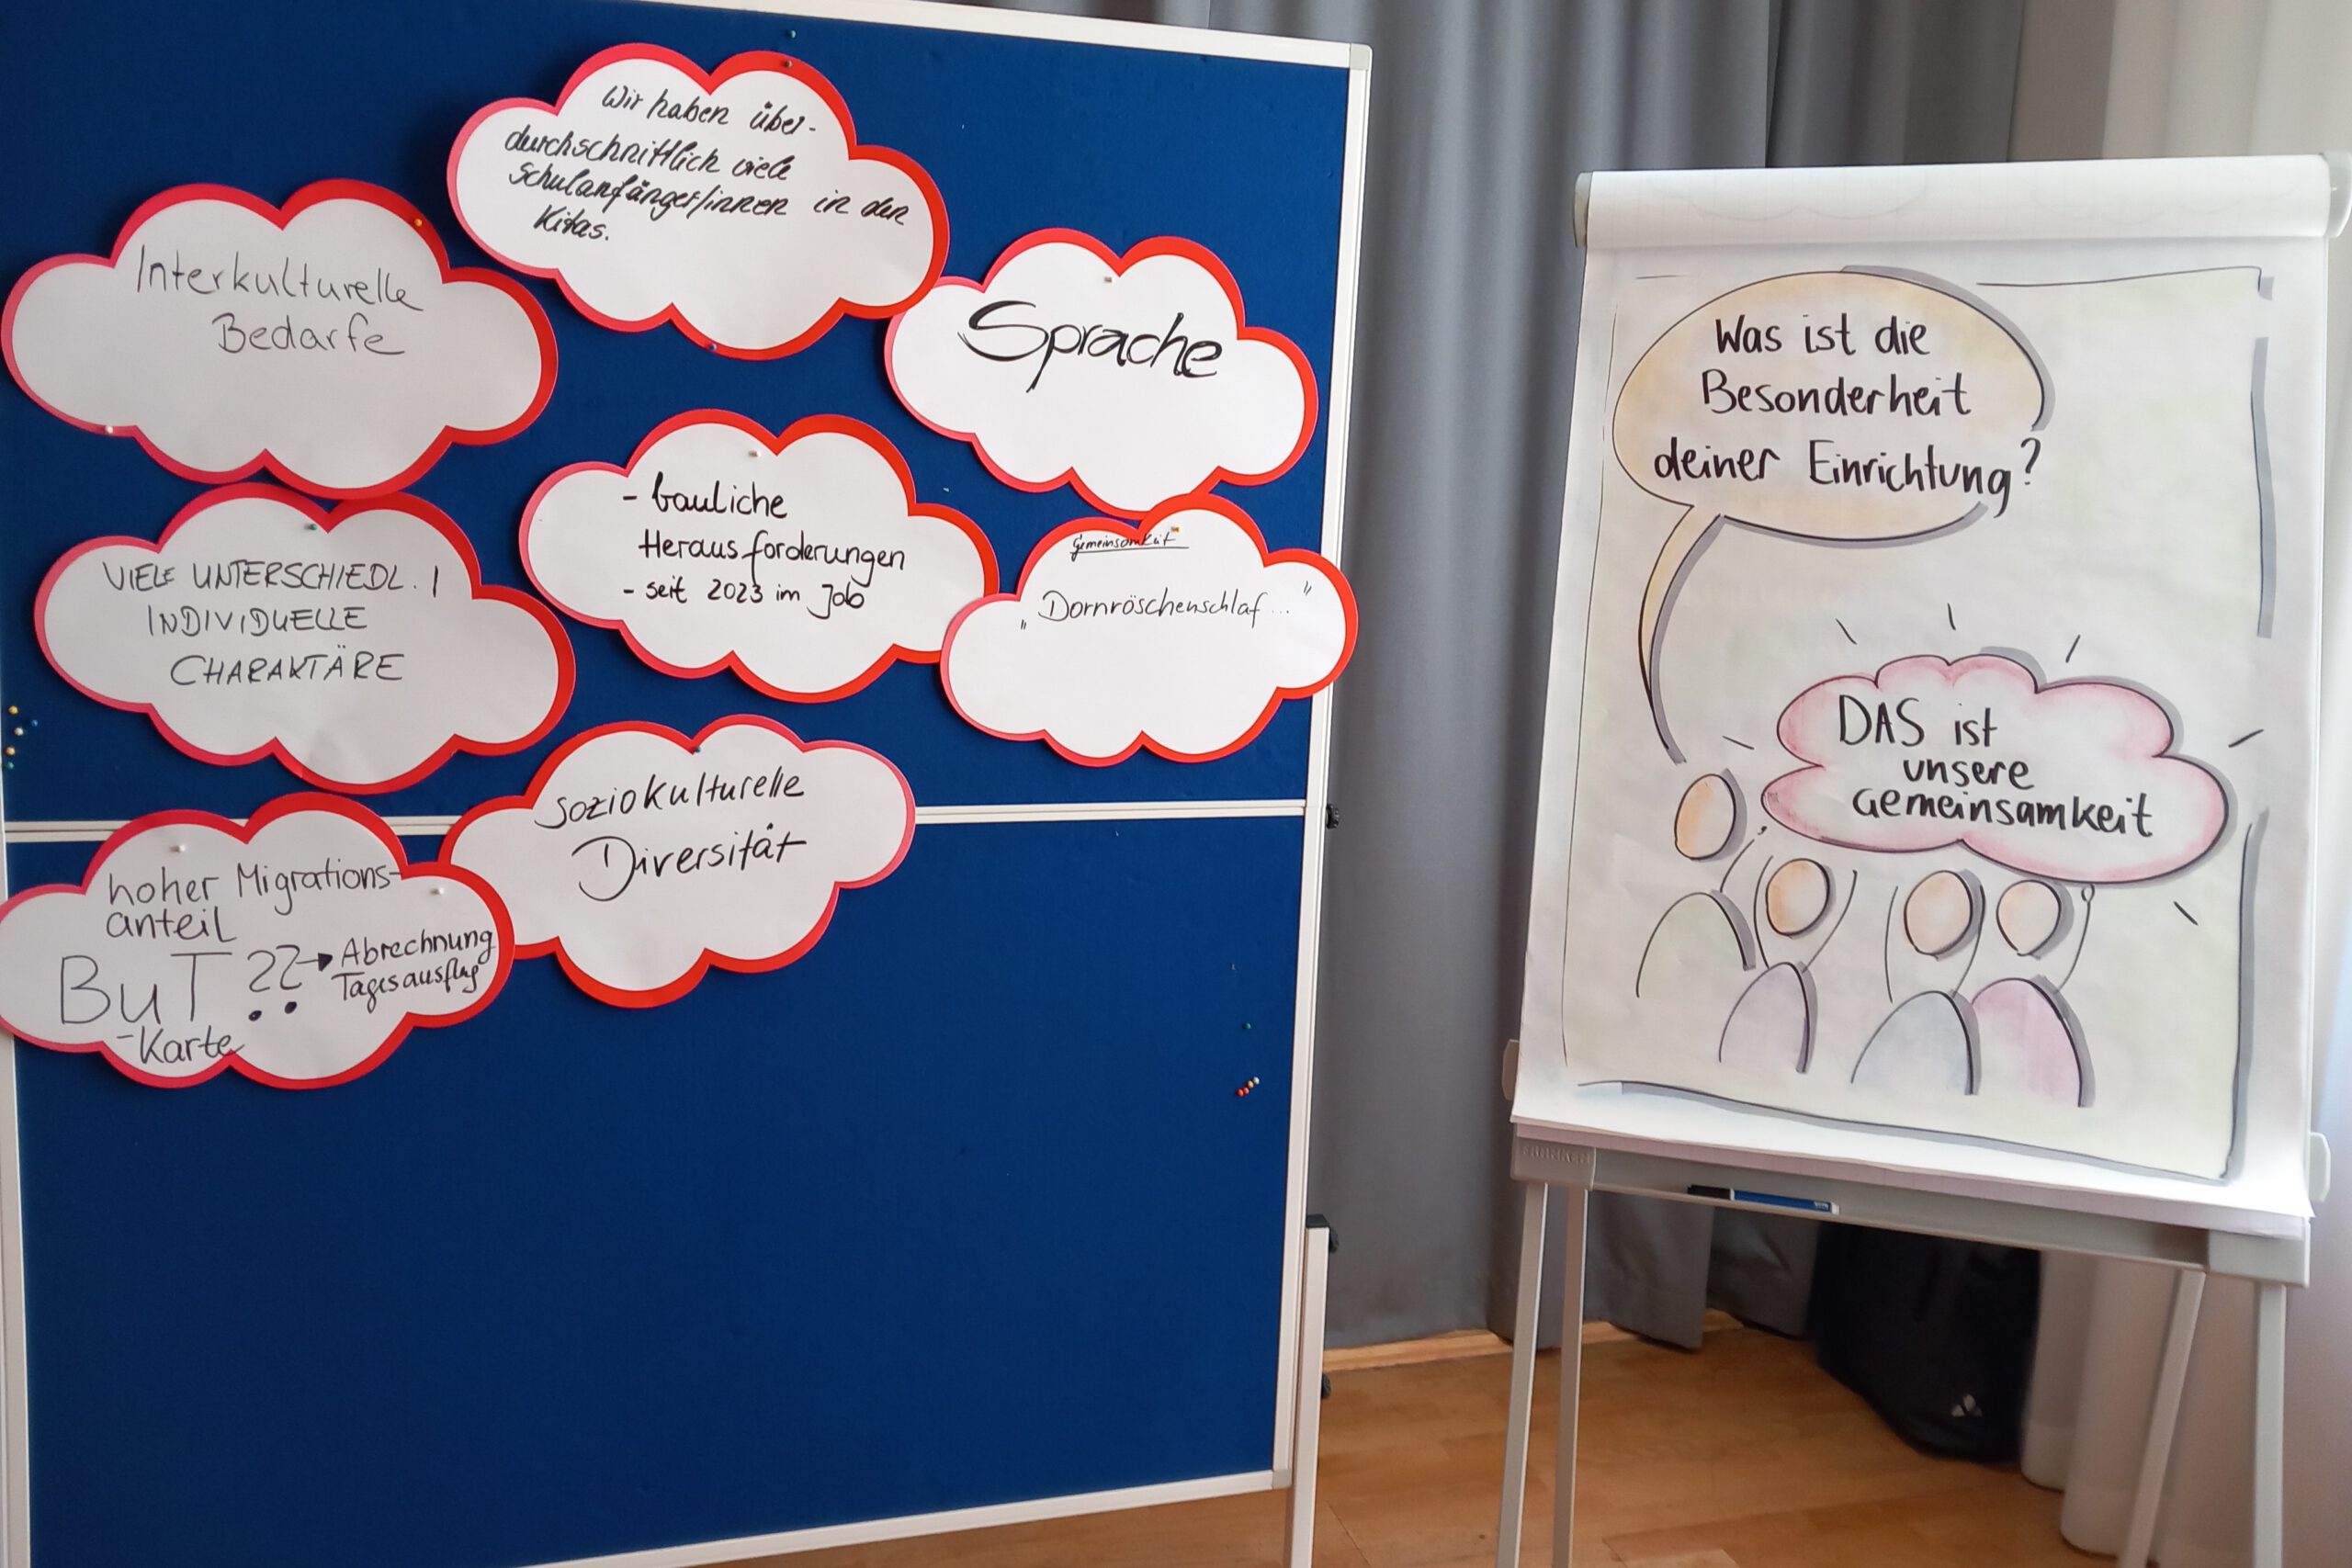 Wir haben über-
durchschnittlich viele
Schulanfänger/innen in den
Kitas.
Interkulturelle
Bedarfe
Sprache
- bauliche
Herausforderungen
- seit 2023 im Job
Gemeinsamkeit
„Dornröschenschlaf..."
VIELE UNTERSCHIEDL. /
INDIVIDUELLE
CHARAKTÄRE
soziokulturelle
Diversität
hoher Migrations-
anteil
BuT ?? → Abrechnung
Tagesausflug
-Karte
Was ist die
Besonderheit
deiner Einrichtung?
DAS ist
unsere
Gemeinsamkeit
FRANKEN